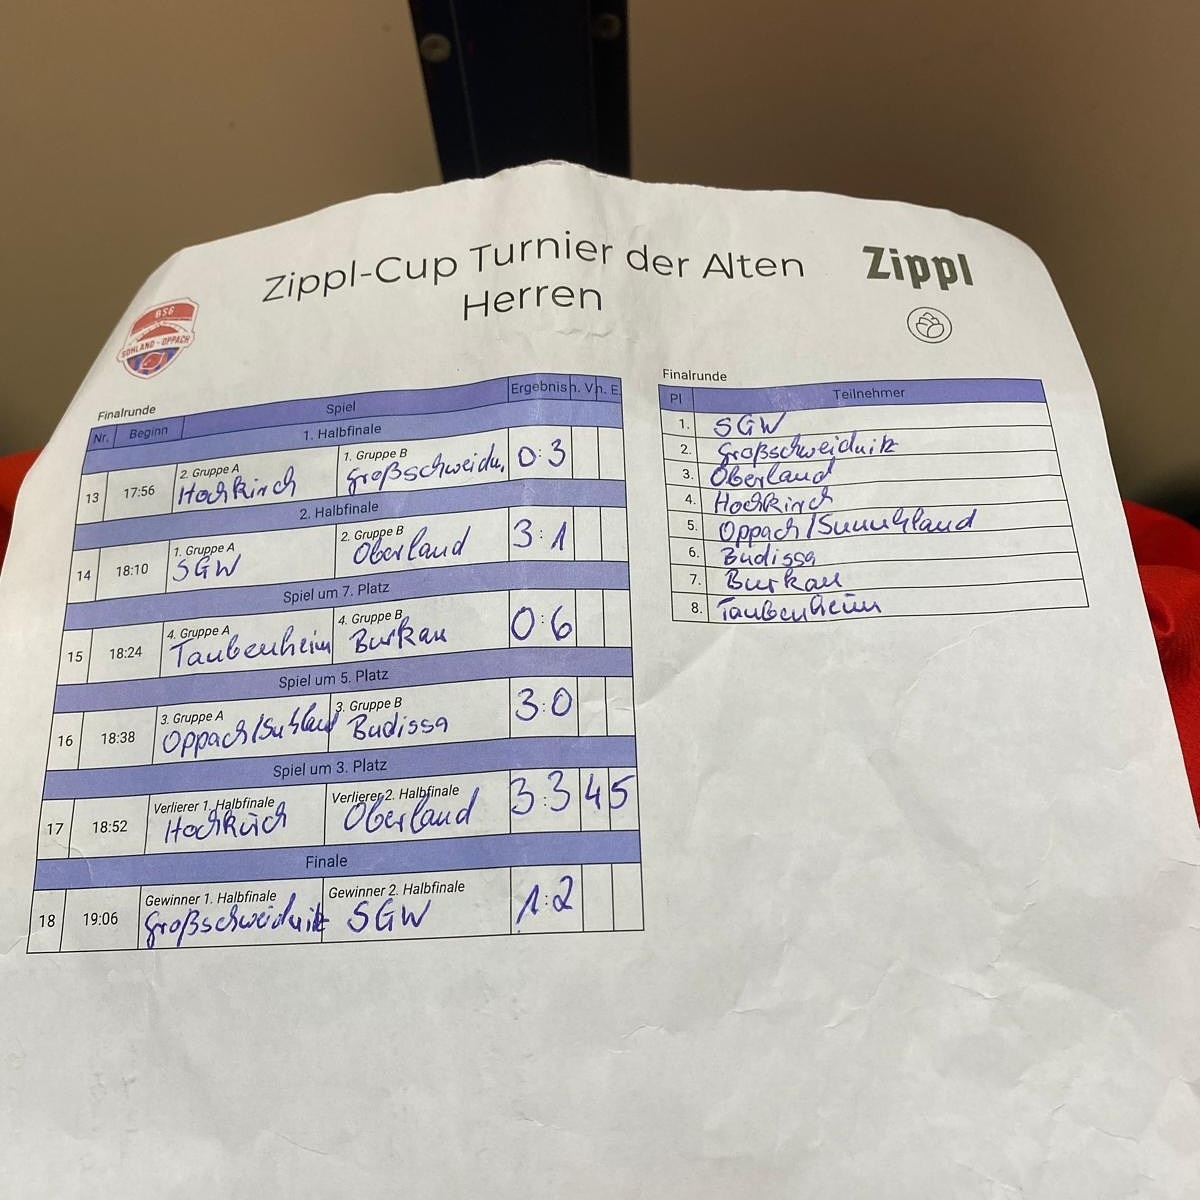 Zippl-Cup Turnier der Alten
Herren
Zippl
BSG
SOHLAND - OPPACH
Finalrunde
Nr. Beginn Spiel Ergebnis n. V n. E.
1. Halbfinale
2. Gruppe A 1. Gruppe B
13 17:56 Hochkirch Großschweidn. 0:3
2. Halbfinale
1. Gruppe A 2. Gruppe B
14 18:10 SGW Oberland 3:1
Spiel um 7. Platz
4. Gruppe A 4. Gruppe B
15 18:24 Taubenheim Burkau 0:6
Spiel um 5. Platz
3. Gruppe A 3. Gruppe B
16 18:38 Oppach/ Budissa 3:0
Spiel um 3. Platz
Verlierer 1. Halbfinale Verlierer 2. Halbfinale
17 18:52 Hochkirch Oberland 3:3 4 5
Finale
Gewinner 1. Halbfinale Gewinner 2. Halbfinale
18 19:06 Großschweidnitz SGW 1:2
Finalrunde
Pl Teilnehmer
1. SGW
2. Großschweidnitz
3. Oberland
4. Hochkirch
5. Oppach/
6. Budissa
7. Burkau
8. Taubenheim